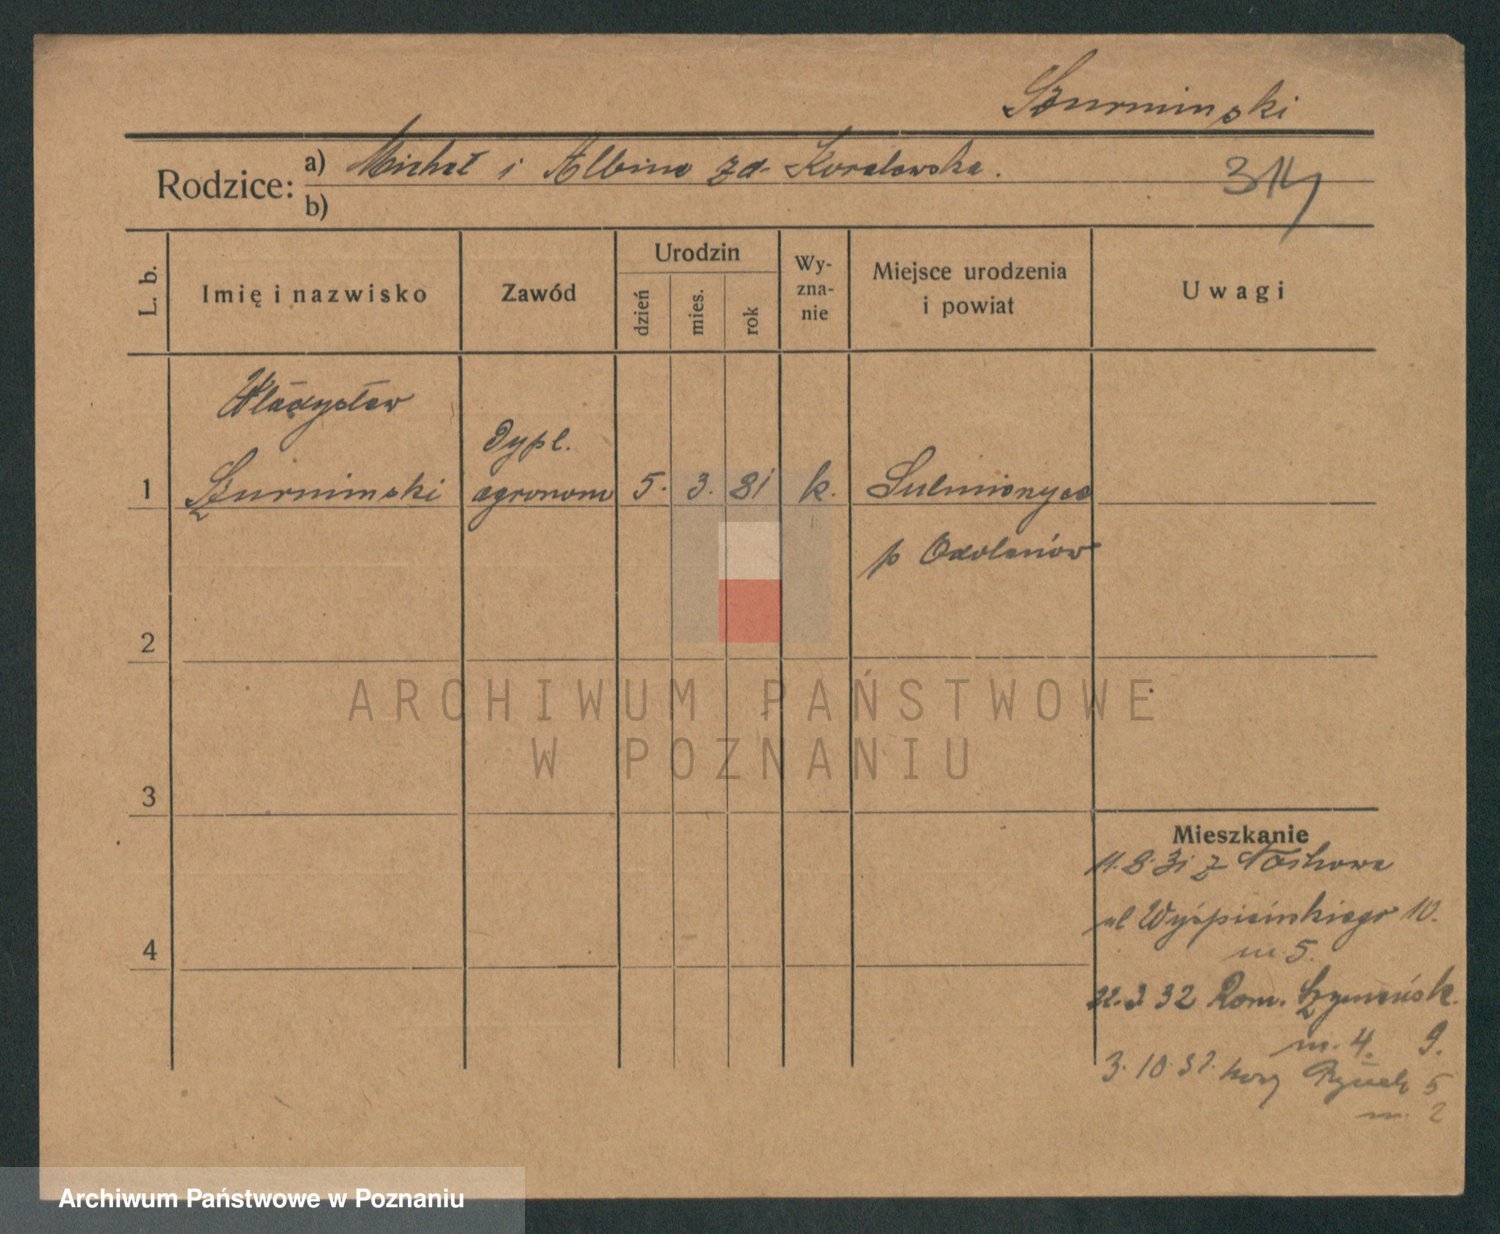 Szurminski
Rodzice:
a) Michał i Albina zd. Koralewska.
b)
314
L. b.
Imię i nazwisko
Zawód
Urodzin
dzień
mies.
rok
Wy-
zna-
nie
Miejsce urodzenia
i powiat
Uwagi
Władysław
Dypl.
1 Szurminski agronom 5. 3. 81 k. Sulmierzyce
p Odolanów
2
ARCHIWUM PAŃSTWOWE
W POZNANIU
3
Mieszkanie
11.8.31 z
ul Wyspiańskiego 10.
4
m 5.
3 32 Rom. Szymańsk.
m. 4. 9.
3.10.32. 5
m. 2
Archiwum Państwowe w Poznaniu